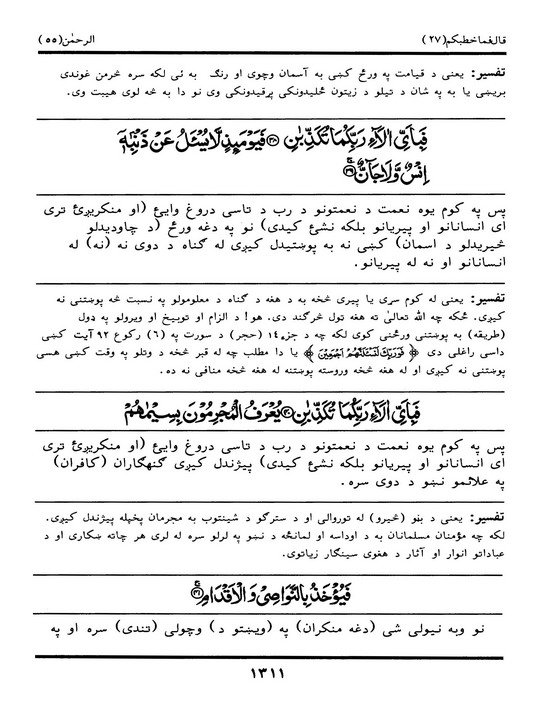 قال فماخطبكم(۲۷) الرحمٰن(۵۵)
تفسیر: یعنی د قیامت په ورځ کښې به آسمان وچوی او رنګ به ئې لکه سره څرمن غوندې
بریښی یا به په شان د تیلو د زیتون ځلیدونکی پړقیدونکی وی نو دا به څه لوی هیبت وی.
فَبِأَيِّ اٰلَآءِ رَبِّكُمَا تُكَذِّبٰنِ ۳۸ فَيَوْمَئِذٍ لَّا يُسْـَٔلُ عَنْ ذَنْبِهٖٓ
اِنْسٌ وَّلَا جَآنٌّ ۳۹
پس په کوم یوه نعمت د نعمتونو د رب د تاسې دروغ وایئ (او منکریږئ تری
ای انسانانو او پیریانو بلکه نشئ کیدی) نو په دغه ورځ (د چاودیدلو
څیریدلو د اسمان) کښې نه به پوښتیدل کیږی له ګناه د دوی نه (نه) له
انسانانو او نه له پیریانو.
تفسیر: یعنی له کوم سری یا پیری څخه به د هغه د ګناه د معلومولو په نسبت څه پوښتنې نه
کیږی. ځکه چه الله تعالیٰ ته هغه ټول څرګند دی. هو! د الزام او توبیخ او ویرولو په ډول
(طریقه) به پوښتنې ورځنې کوی لکه چه د جز۱۴ (حجر) د سورت په (۶) رکوع ۹۲ آیت کښې
داسې راغلی دی ﴿ فَوَرَبِّكَ لَنَسْـَٔلَنَّهُمْ اَجْمَعِيْنَ ﴾ یا دا مطلب چه له قبر څخه د وتلو په وقت کښې هسې
پوښتنې نه کیږی او له هغه څخه وروسته پوښتنه له هغه څخه منافی نه ده.
فَبِأَيِّ اٰلَآءِ رَبِّكُمَا تُكَذِّبٰنِ ۴۰ يُعْرَفُ الْمُجْرِمُوْنَ بِسِيْمٰهُمْ
پس په کوم یوه نعمت د نعمتونو د رب د تاسې دروغ وایئ (او منکریږئ تری
ای انسانانو او پیریانو بلکه نشئ کیدی) پیژندل کیږی ګنهګاران (کافران)
په علائمو نښو د دوی سره.
تفسیر: یعنی د بڼو (څیرو) له توروالی او د سترګو د شینتوب به مجرمان پخپله پیژندل کیږی.
لکه چه مؤمنان مسلمانان به د اوداسه او لمانځه د نښو په لرلو سره له لری هر چاته ښکاری او د
عباداتو انوار او آثار د هغوی سینګار زیاتوی.
فَيُؤْخَذُ بِالنَّوَاصِيْ وَالْاَقْدَامِ ۴۱
نو وبه نیولی شی (دغه منکران) په (ویښتو د) وچولی (تندی) سره او په
۱۳۱۱